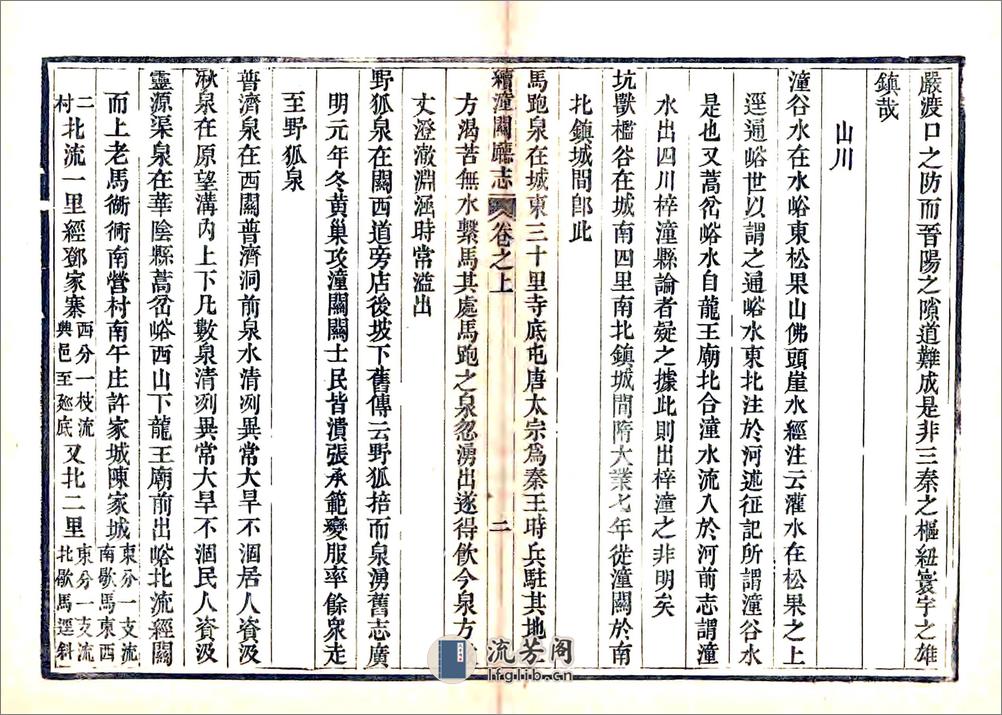 嚴渡口之防而晉陽之隙道難成是非三秦之樞紐寰宇之雄
鎮哉
山川
潼谷水在水峪東松果山佛頭崖水經注云灌水在松果之上
逕通峪世以謂之通峪水東北注於河述征記所謂潼谷水
是也又蒿岔峪水自龍王廟北合潼水流入於河前志謂潼
水出四川梓潼縣論者疑之據此則出梓潼之非明矣
坑獸檻谷在城南四里南北鎮城間隋大業七年徙潼關於南
北鎮城間郎此
馬跑泉在城東三十里寺底屯唐太宗為秦王時兵駐其地
方渴苦無水繫馬其處馬跑之泉忽湧出遂得飲今泉方
丈澄澈淵涵時常溢出
野狐泉在關西道旁店後坡下舊傳云野狐掊而泉湧舊志廣
明元年冬黃巢攻潼關關士民皆潰張承範變服率餘眾走
至野狐泉
普濟泉在西關普濟洞前泉水清冽異常大旱不涸居人資汲
湫泉在原望溝內上下凡數泉清冽異常大旱不涸民人資汲
靈源渠泉在華陰縣蒿岔峪西山下龍王廟前出峪北流經關
而上老馬衕衕南營村南午庄許家城陳家城東分一支流南歇馬東西
二北流一里經鄧家寨西分一枝流
村典邑至廵底又北二里東分一支流北歇馬逕斜
續潼關廳志 卷之上 二
流芳阁
lfglib.cn